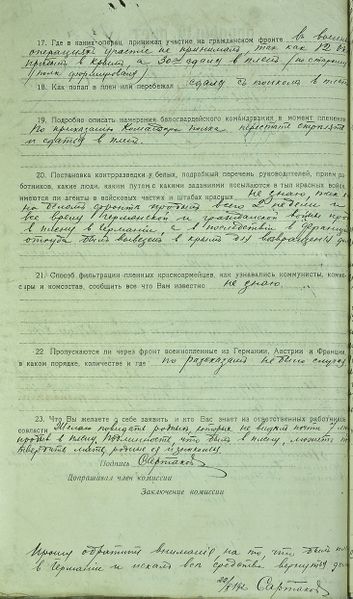 17. Где в каких операц. принимал участие на гражданском фронте в военных
операциях участие не принимал так как 12
прибыл в Крым а 30 сдался в плен
полк формировал)
18. Как попал в плен или перебежал сдался с полком в плен
19. Подробно описать намерения белогвардейского командования в момент пленения
По приказанию Командира полка перестать стрелять
и сдаться в плен
20. Постановка контрразведки у белых, подробный перечень руководителей, прием ра-
ботников, какие люди, каким путем с какими заданиями посылаются в тыл красных войск
имеются ли агенты в войсковых частях и штабах красных не знаю
на белом фронте пробыл всего 2 недели и
все время Германской и гражданской войны
в плену в Германии, а в последствие в Франции
откуда был вывезен в Крым для возвращения
21. Способ фильтрации пленных красноармейцев, как узнавались коммунисты, комис-
сары и комсостав, сообщить все что Вам известно не знаю
22 Пропускаются ли через фронт военнопленные из Германии, Австрии и Франции
в каком порядке, количестве и где по рассказам не было случая
23. Что Вы желаете о себе заявить и кто Вас знает из ответственных работников
совласти Желаю повидать родных, которых не видал почти 7
пробыв в плену. что был в плену, может
твердить мать, родные
Подпись Сартаков
Допрашивал член комиссии
Заключение комиссии
Прошу обратить внимание на то, что был
в Германии и искал все средства вернуться
Сартаков